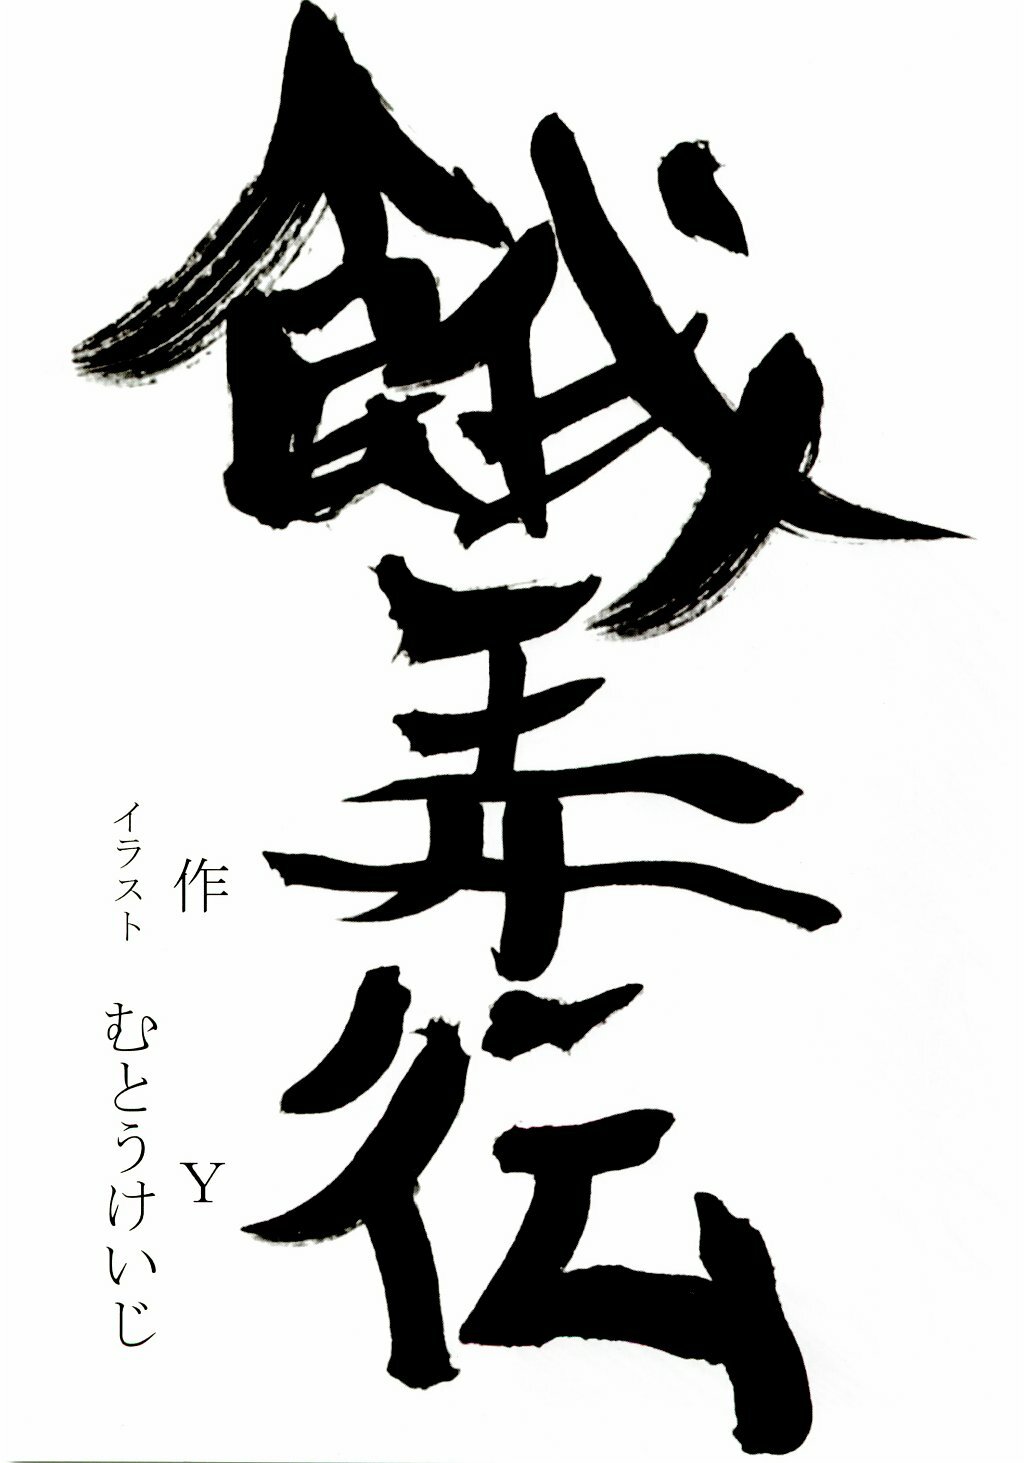 餓弄伝
作 Y
イラスト むとうけいじ